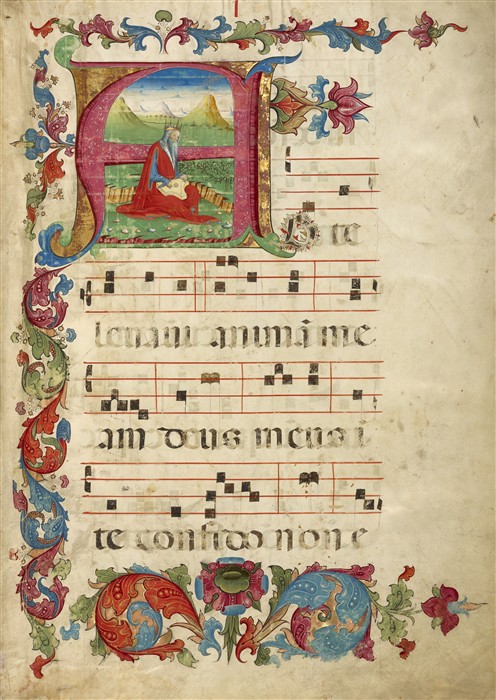 AD te
leuaui animā me
am deus meus i
te confido non e